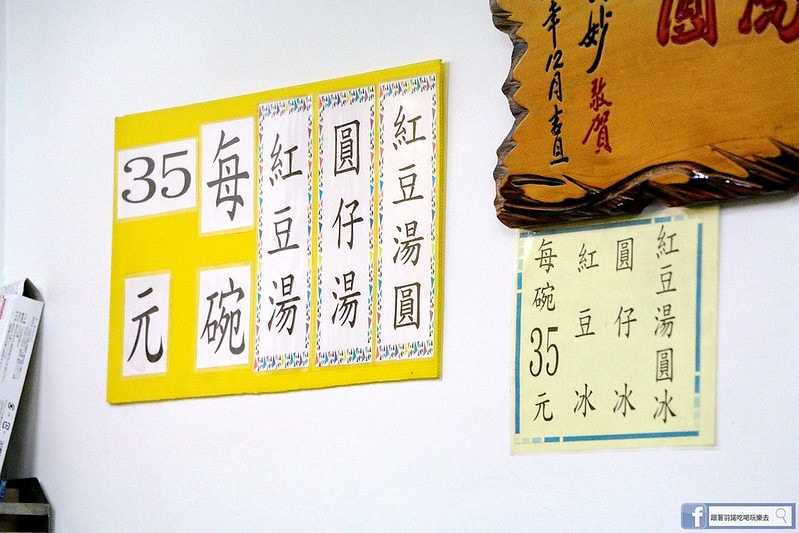 紅豆湯圓
圓仔湯
紅豆湯
每碗
35元
紅豆湯圓冰
圓仔冰
紅豆冰
每碗35元
圓
妙 敬賀
年12月吉旦
跟著羽諾吃喝玩樂去